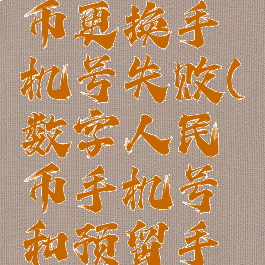 币更换手
机号失败(
数字人民
币手机号
和预留手